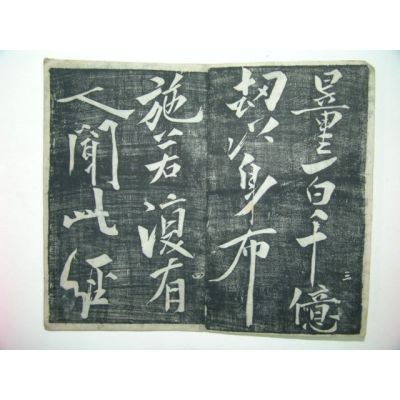 量百千億
劫以身布
施若復有
人聞此經
三
四